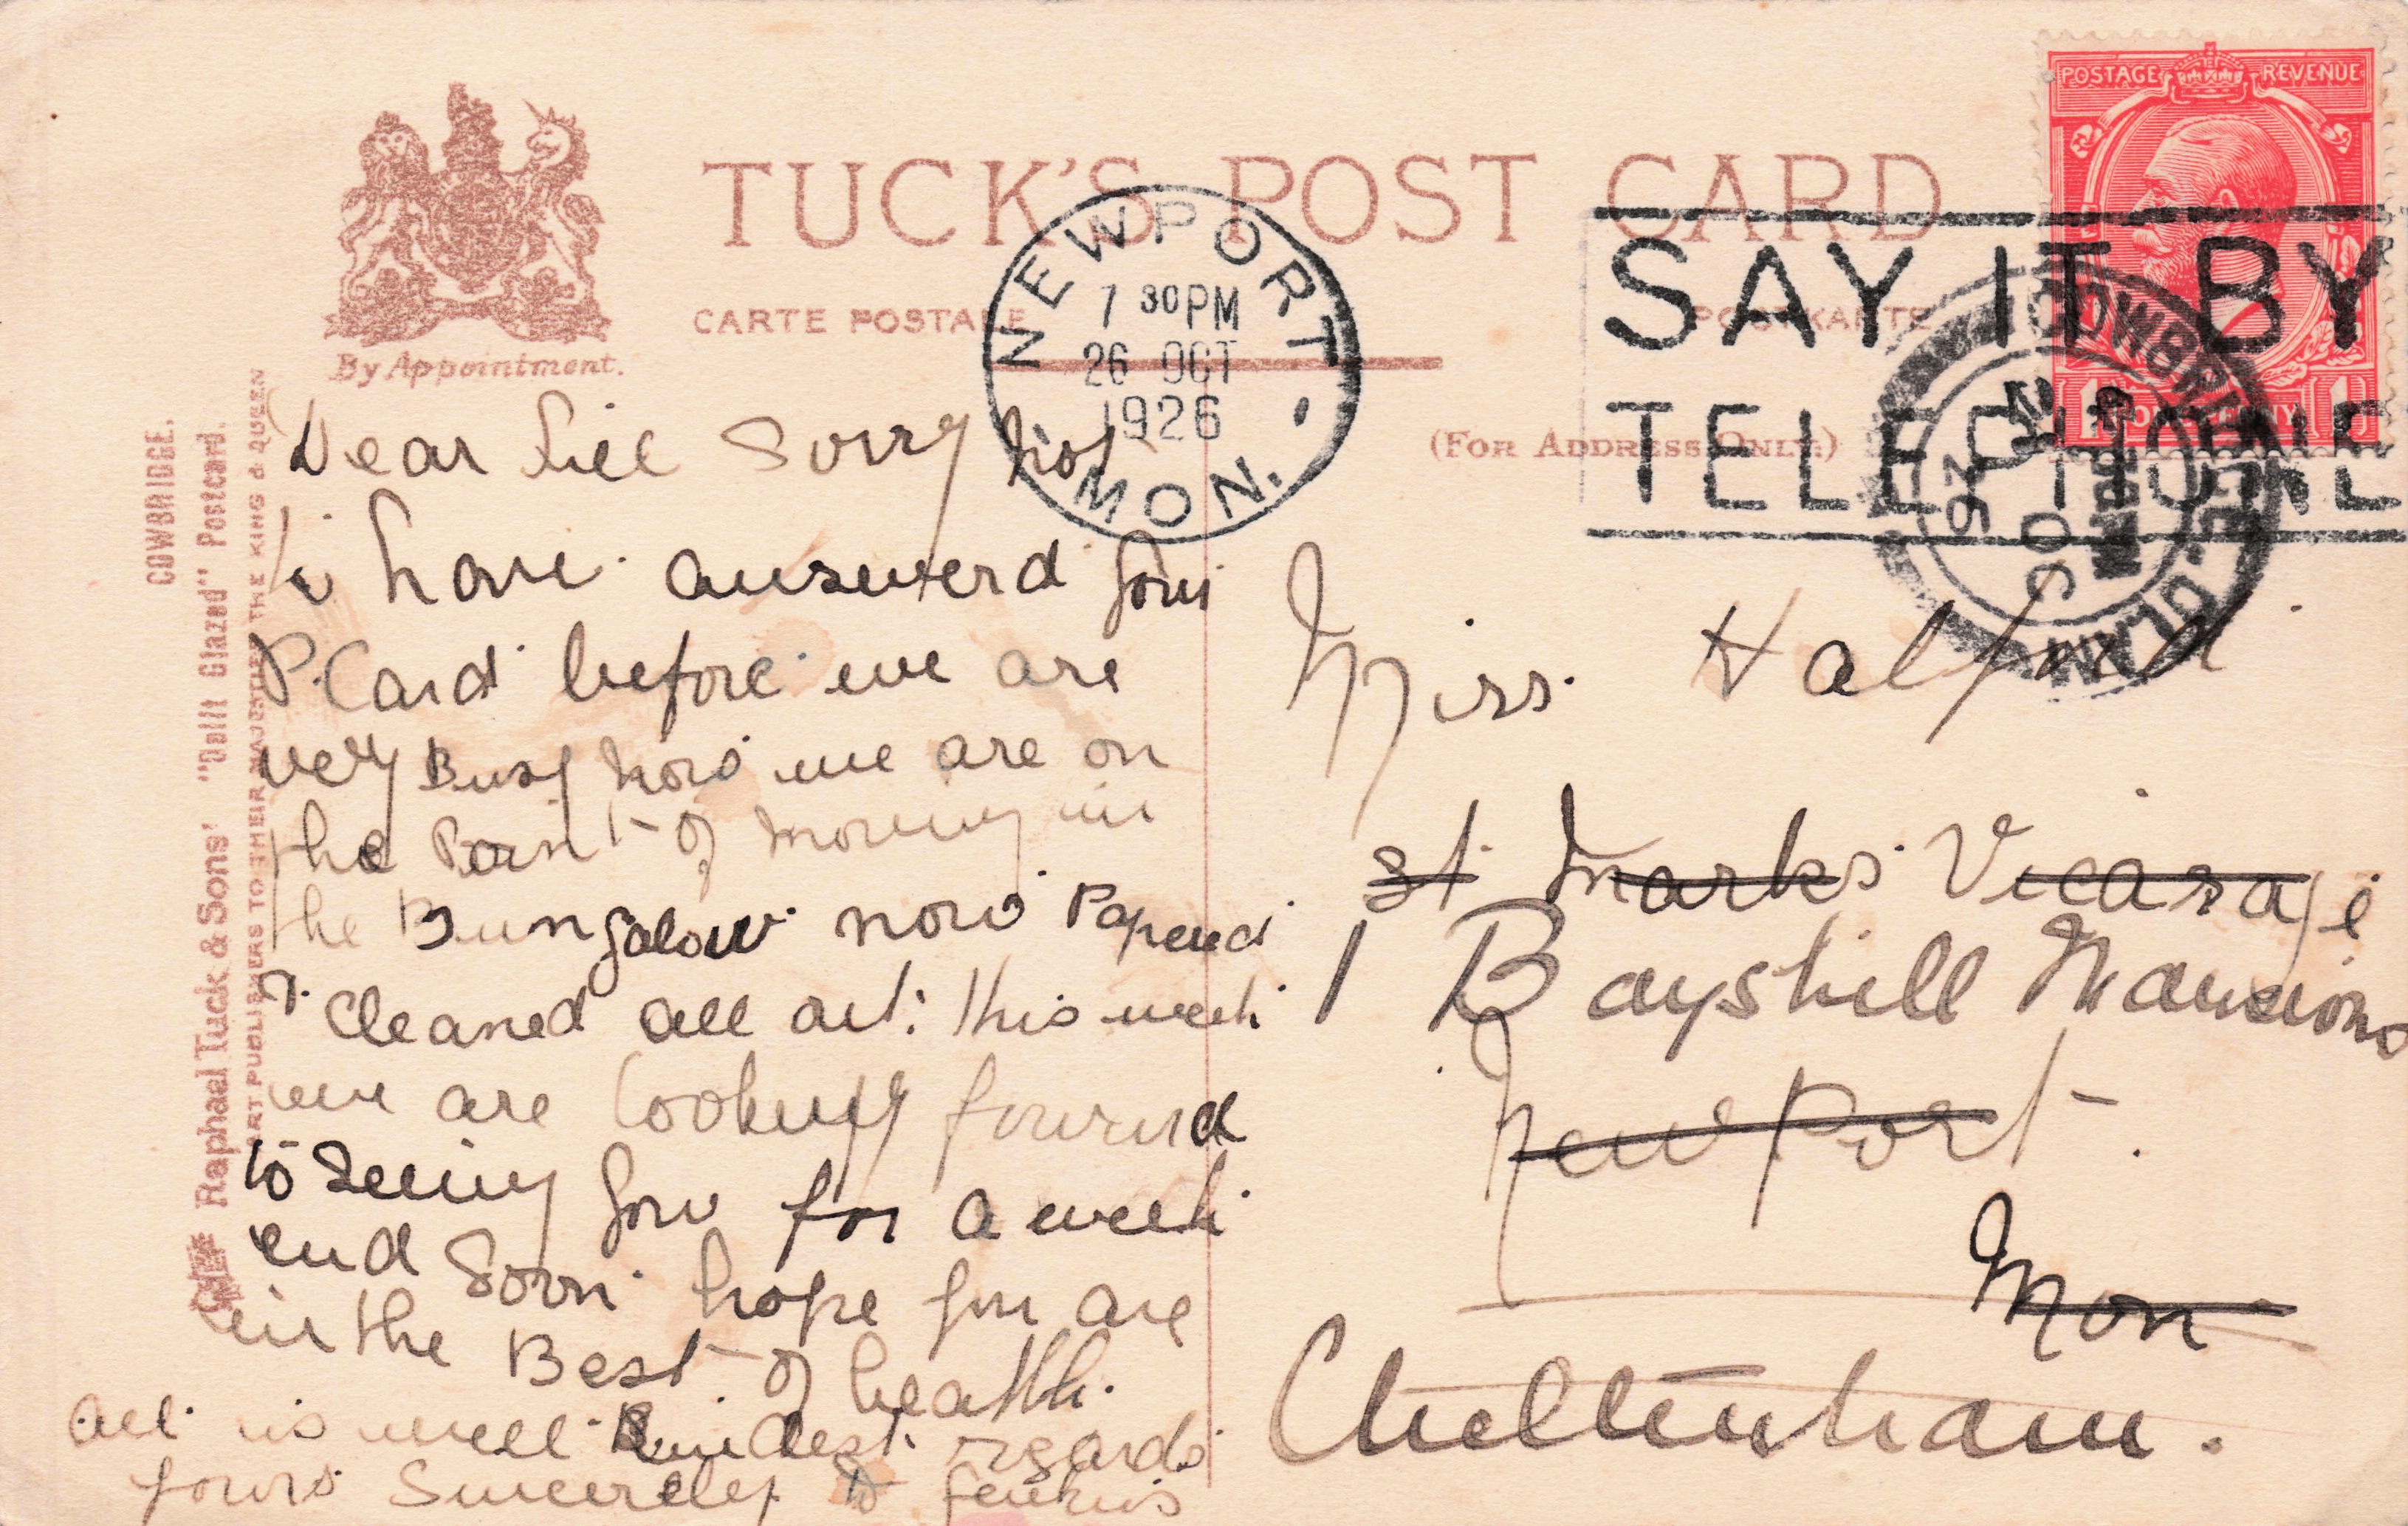 TUCK'S POST CARD
CARTE POSTALE
POSTKARTE
By Appointment.
(FOR ADDRESS ONLY.)
POSTAGE REVENUE
ONE PENNY
NEWPORT
7 30PM
26 OCT
1926
MON.
SAY IT BY
TELEPHONE
COWBRIDGE GLAM
OC
26
COWBRIDGE.
Raphael Tuck & Sons' "Delit Glazed" Postcard.
ART PUBLISHERS TO THEIR MAJESTIES THE KING & QUEEN
Dear Lill Sorry not
to have answerd your
P.Card before we are
very Busy now we are on
the Point of moving in
the Bungalow now Papered
& Cleaned all out: this week
we are looking forward
to Seeing you for a week
end Soon hope you are
in the Best of health.
all is well Kindest regards
yours Sincerely Jenkins
Miss Halford
St Marks Vicarage
1 Bayshill Mansions
NewPort.
Mon
Cheltenham.